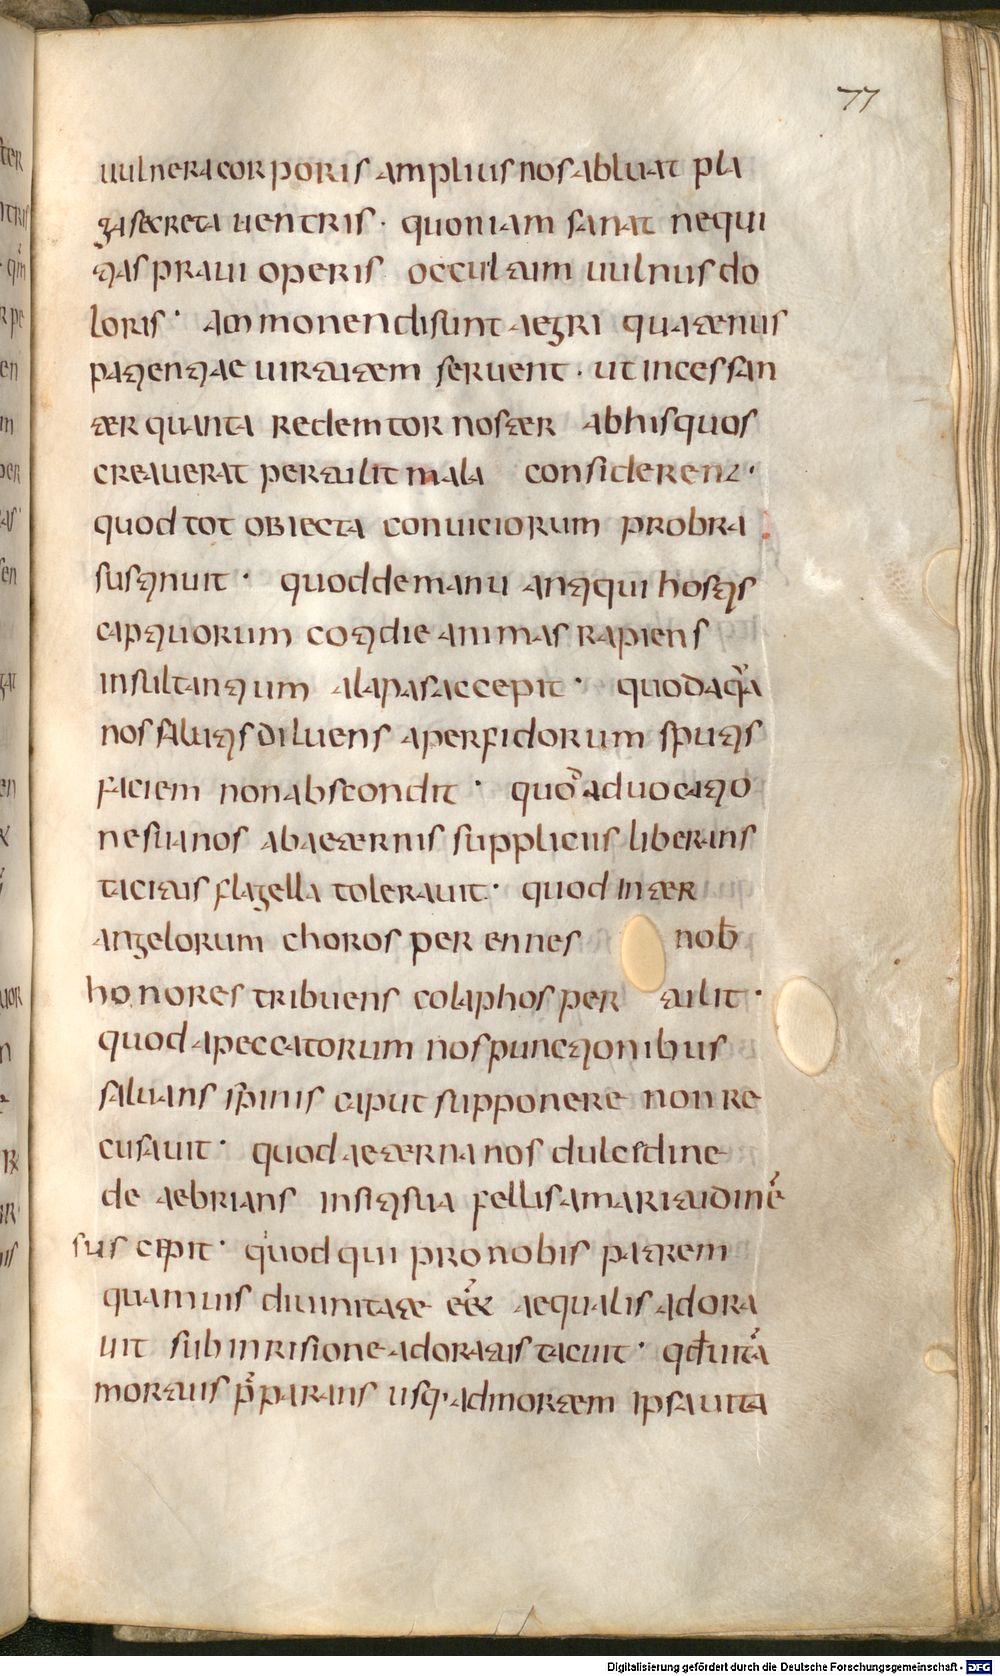 77
uulnera corporis amplius nos abluat pla
ga secreta uentris · quoniam sanat nequi
tias praui operis occultum uulnus do
loris · Ammonendi sunt aegri quatenus
patientiae uirtutem seruent · ut incessan
ter quanta redemtor noster ab his quos
creauerat pertulit mala considerent ·
quod tot obiecta conuiciorum probra
sustinuit · quod de manu antiqui hostis
captiuorum cotidie animas rapiens
insultantium alapas accepit · quod aqua
nos salutis diluens a perfidorum sputis
faciem non abscondit · quod aduocatio
ne sua nos ab aeternis suppliciis liberans
tacitus flagella tolerauit · quod inter
angelorum choros perennes nob
honores tribuens colaphos pertulit ·
quod a peccatorum nos punctionibus
saluans spinis caput supponere non re
cusauit · quod aeterna nos dulcedine
de aebrians in siti sua fellis amaritudine
suscepit · quod qui pro nobis patrem
quamuis diuinitate eet aequalis adora
uit sub inrisione adoratus tacuit · qd uita
mortuis pparans usq· ad mortem ipsa uita
Digitalisierung gefördert durch die Deutsche Forschungsgemeinschaft - DFG